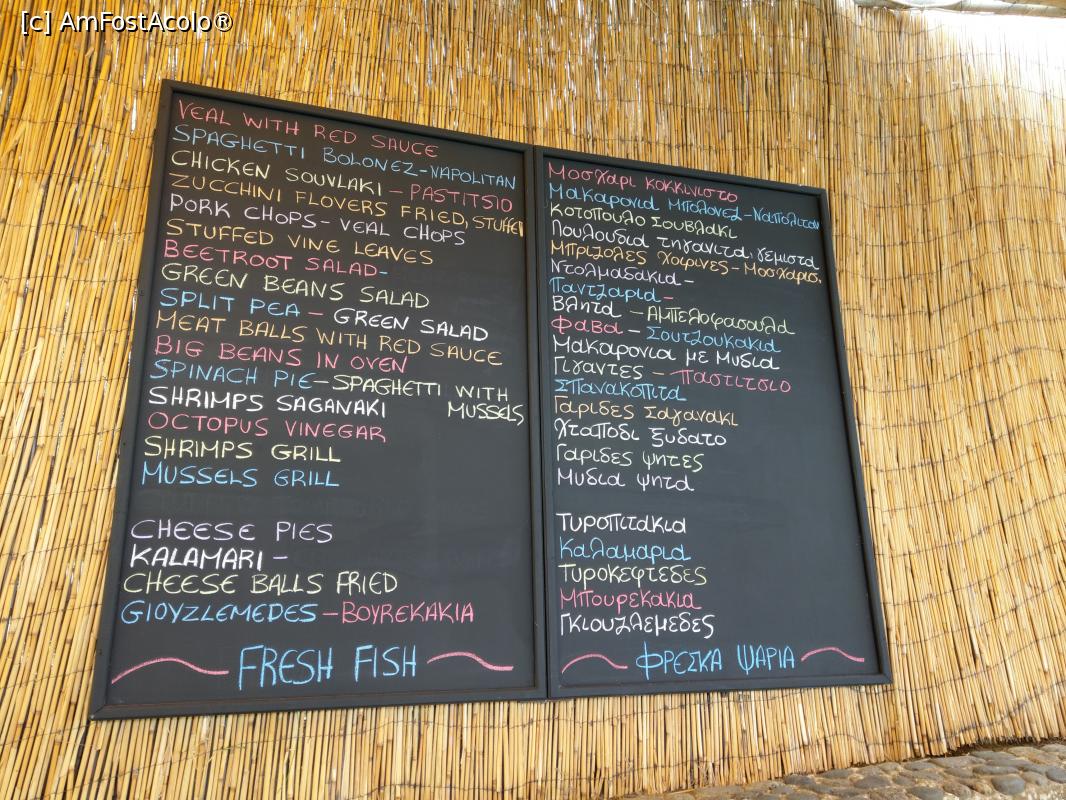 [c] AmFostAcolo®
VEAL WITH RED SAUCE
SPAGHETTI BOLONEZ-NAPOLITAN
CHICKEN SOUVLAKI - PASTITSIO
ZUCCHINI FLOVERS FRIED, STUFFEN
PORK CHOPS- VEAL CHOPS
STUFFED VINE LEAVES
BEETROOT SALAD-
GREEN BEANS SALAD
SPLIT PEA - GREEN SALAD
MEAT BALLS WITH RED SAUCE
BIG BEANS IN OVEN
SPINACH PIE-SPAGHETTI WITH
MUSSELS
SHRIMPS SAGANAKI
OCTOPUS VINEGAR
SHRIMPS GRILL
MUSSELS GRILL
CHEESE PIES
KALAMARI -
CHEESE BALLS FRIED
GIOYZLEMEDES - BOYREKAKIA
FRESH FISH
Μοσχαρι κοκκινιστο
Μακαρονια Μπολονεζ - Ναπολιταν
Κοτοπουλο Σουβλακι
Λουλουδια τηγανιτα, γεμιστα
Μπριζολες χοιρινες - Μοσχαρισ.
Ντολμαδακια -
Παντζαρια -
Βλητα - Αμπελοφασουλα
Φαβα - Σουτζουκακια
Μακαρονια με Μυδια
Γιγαντες - Παστιτσιο
Σπανακοπιτα
Γαριδες Σαγανακι
Χταποδι ξυδατο
Γαριδες ψητες
Μυδια ψητα
Τυροπιτακια
Καλαμαρια
Τυροκεφτεδες
Μπουρεκακια
Γκιουζλεμεδες
ΦΡΕΣΚΑ ΨΑΡΙΑ